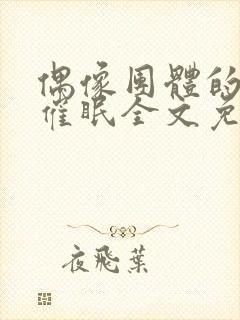 偶像團體的
催眠全文免
夜飛葉